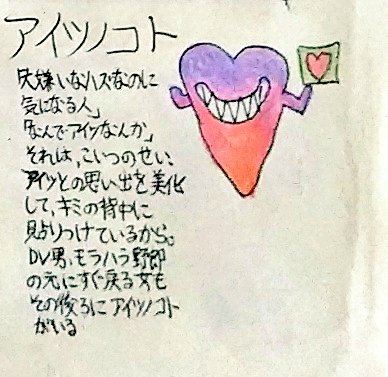 アイツノコト
「大嫌いなハズなのに
気になる人」
「なんでアイツなんか」
それは、こいつのせい、
アイツとの思い出を美化
して、キミの背中に
貼りつけているから。
DV男、モラハラ野郎
の元にすぐ戻る女も
その後ろにアイツノコト
がいる